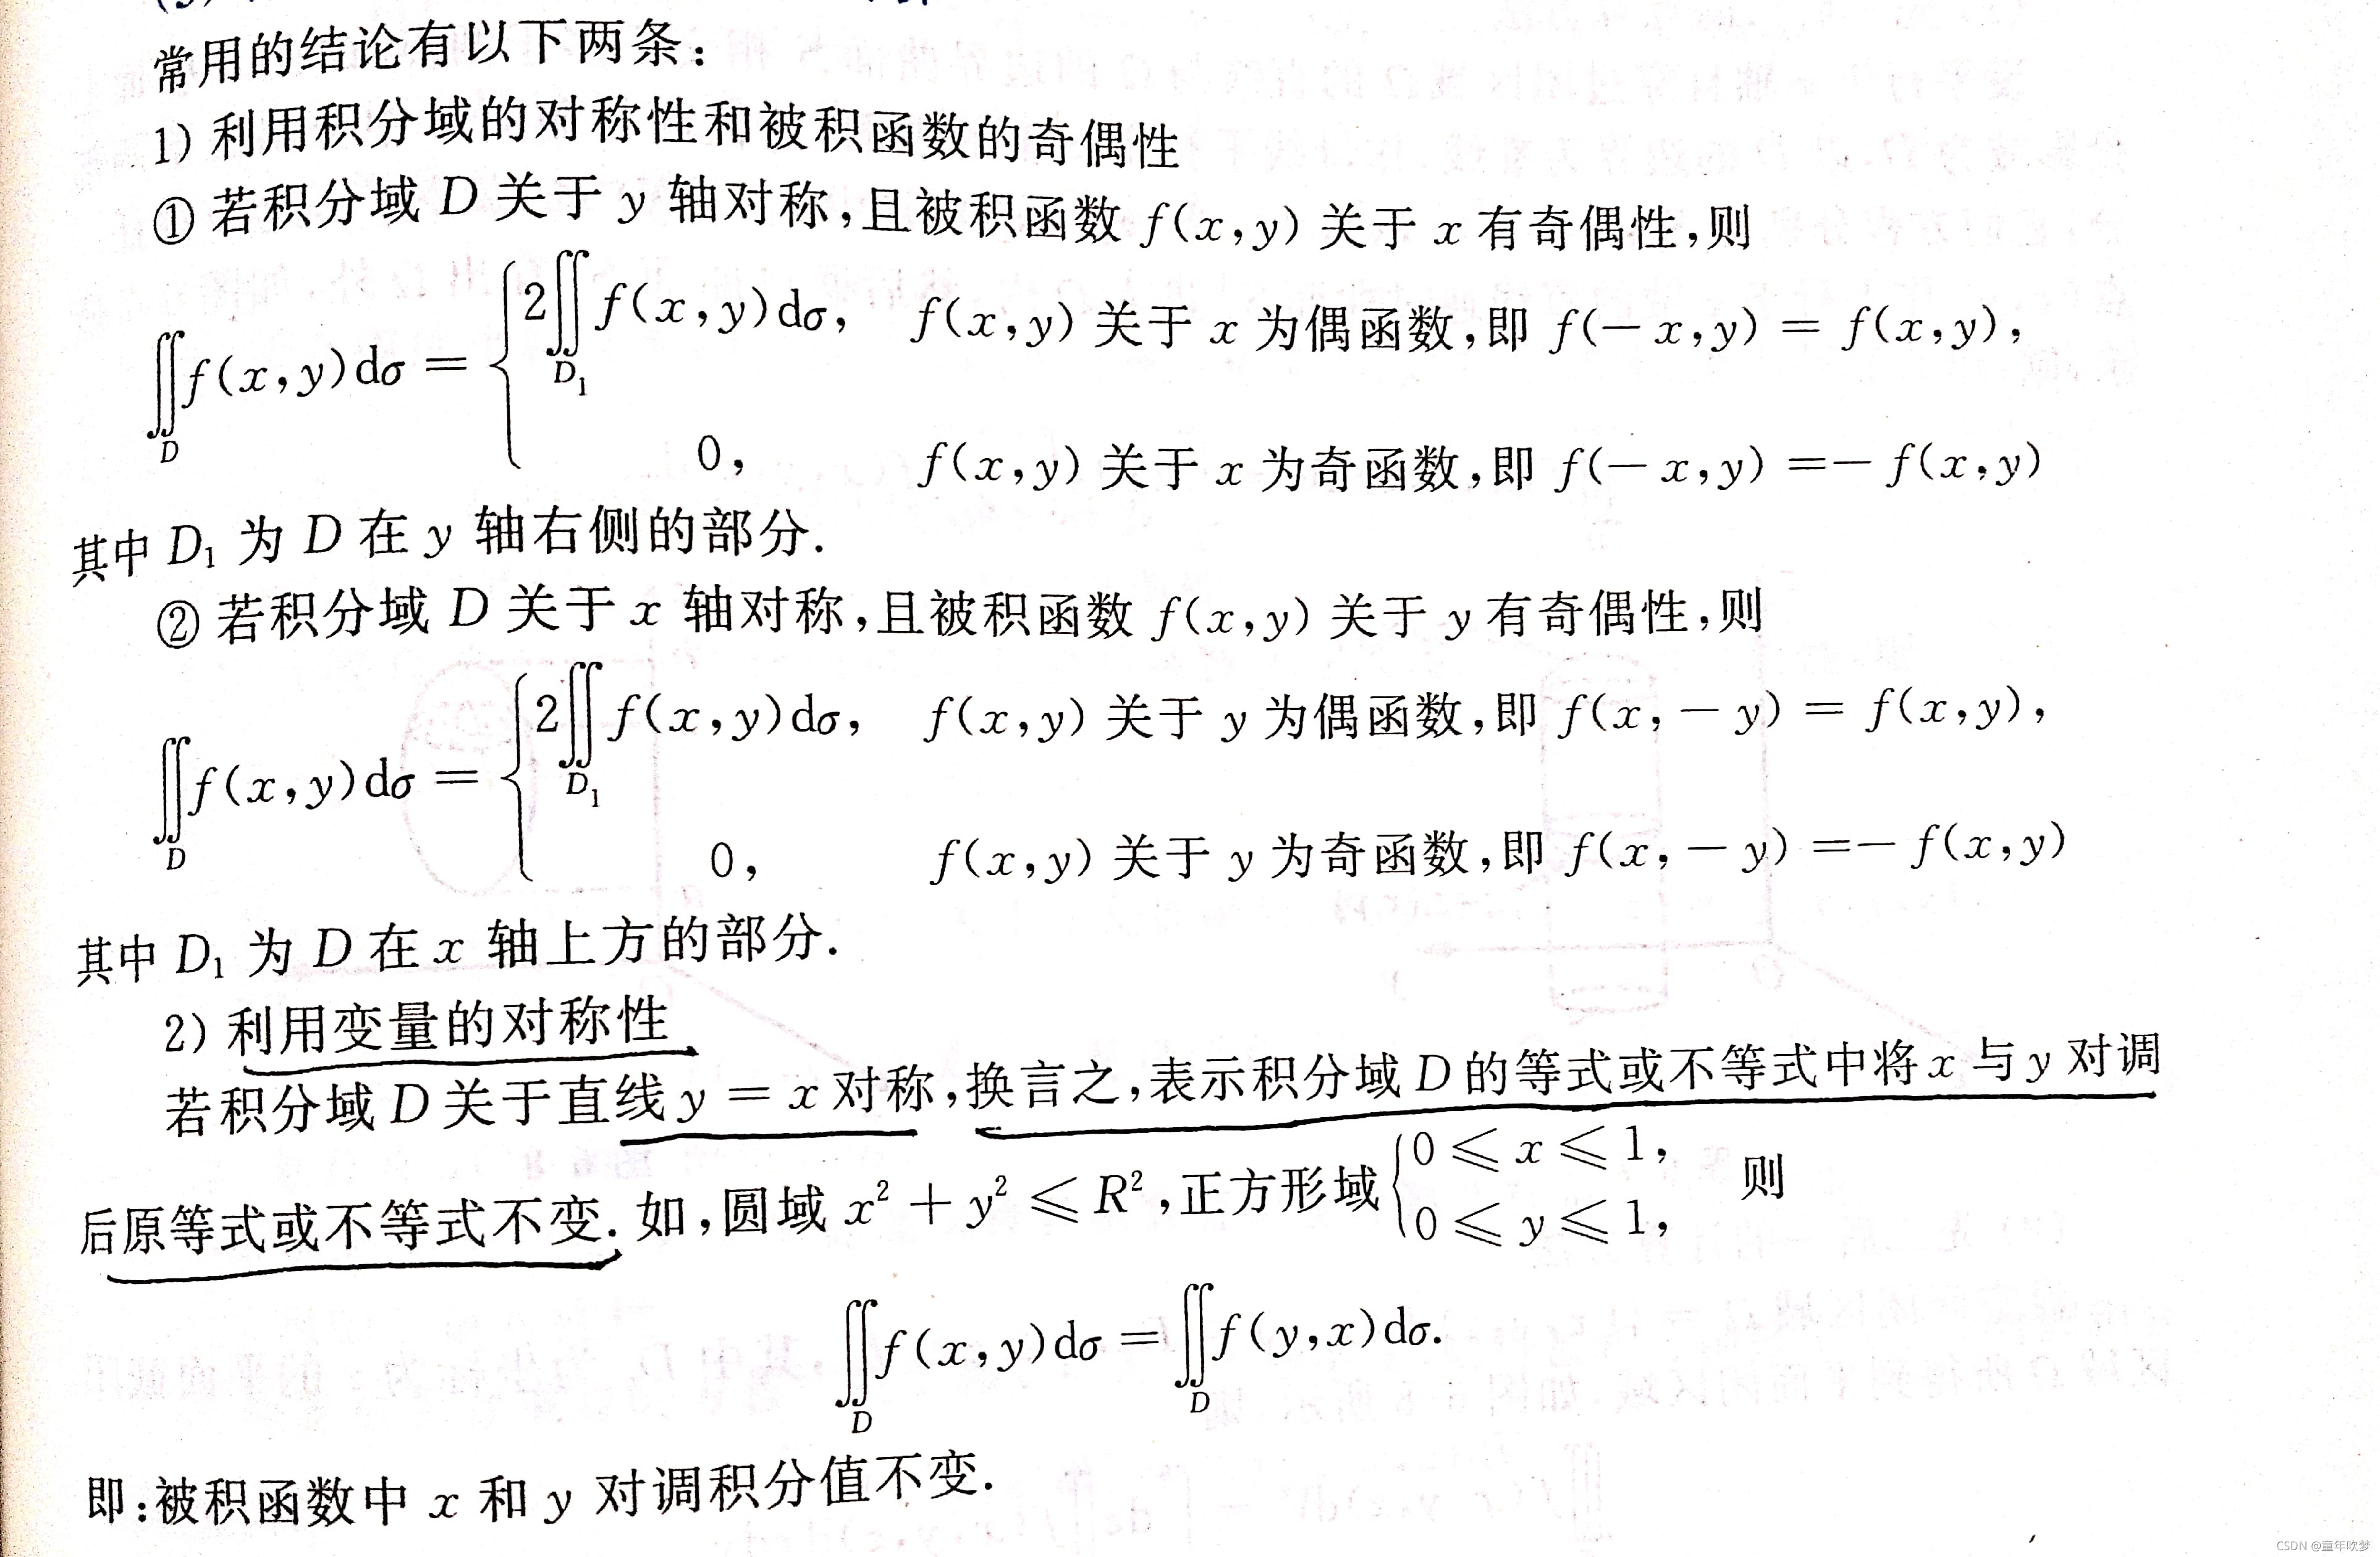 常用的结论有以下两条:
1) 利用积分域的对称性和被积函数的奇偶性
① 若积分域 D 关于 y 轴对称,且被积函数 f(x,y) 关于 x 有奇偶性,则
∬_D f(x,y)dσ = { 2∬_{D₁} f(x,y)dσ, f(x,y) 关于 x 为偶函数,即 f(-x,y) = f(x,y),
0, f(x,y) 关于 x 为奇函数,即 f(-x,y) =- f(x,y)
其中 D₁ 为 D 在 y 轴右侧的部分.
② 若积分域 D 关于 x 轴对称,且被积函数 f(x,y) 关于 y 有奇偶性,则
∬_D f(x,y)dσ = { 2∬_{D₁} f(x,y)dσ, f(x,y) 关于 y 为偶函数,即 f(x,-y) = f(x,y),
0, f(x,y) 关于 y 为奇函数,即 f(x,-y) =- f(x,y)
其中 D₁ 为 D 在 x 轴上方的部分.
2) 利用变量的对称性
若积分域 D 关于直线 y = x 对称,换言之,表示积分域 D 的等式或不等式中将 x 与 y 对调
后原等式或不等式不变. 如,圆域 x² + y² ⩽ R²,正方形域 { 0 ⩽ x ⩽ 1, 0 ⩽ y ⩽ 1, 则
∬_D f(x,y)dσ = ∬_D f(y,x)dσ.
即:被积函数中 x 和 y 对调积分值不变.
CSDN @童年吹梦